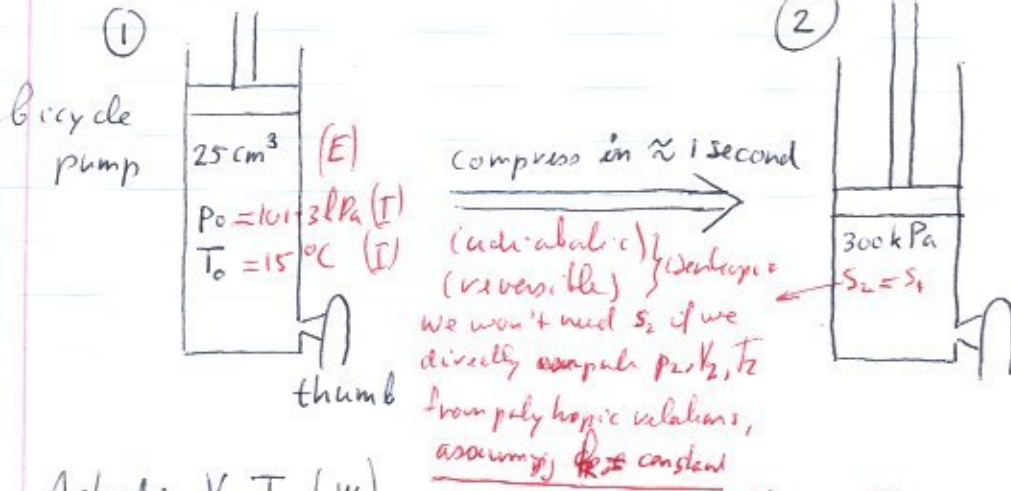 ①
②
bicycle
pump
25 cm³ (E)
P₀ = 101.3 kPa (I)
T₀ = 15 °C (I)
thumb
compress in ≈ 1 second
(adiabatic) } isentropic
(reversible)
we won't need S₂ if we
directly compute p₂, V₂, T₂
from polytropic relations,
assuming constant
300 kPa
S₂ = S₁